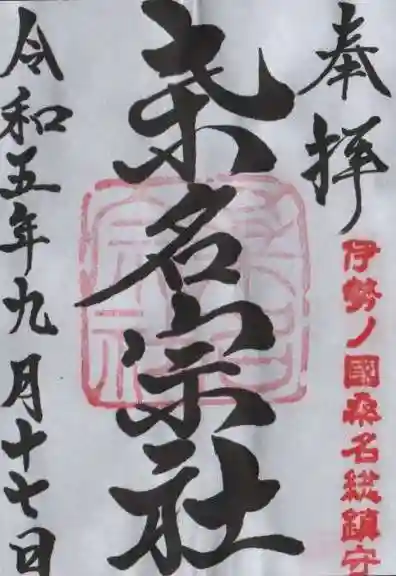 奉拝
伊勢ノ國桑名総鎮守
桒名宗社
令和五年九月十七日